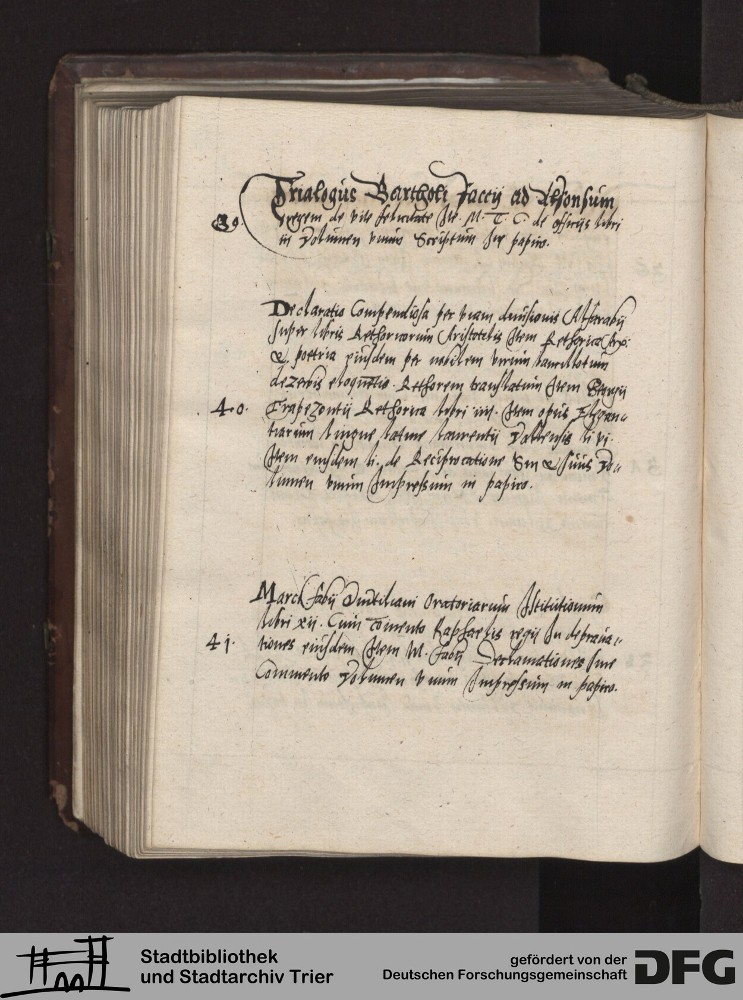 Trialogus Bartholi Faccij ad Alfonsum
39. regem de vite felicitate It. M. T. C. de officijs libri
iij Volumen vnum Scriptum In papiro.
Declaratio Compendiosa per viam diuisionis Alfarabij
super libris Rethoricorum Aristotelis Item Rethorica Arx:
&. poetria eiusdem per nobilem virum lancillotum
dezerbis eloquentie Rethorem translatum Item Georgij
40. Trapezontij Rethorica libri iiij. Item opus Elegan-
tiarum lingue latine laurentij Vallensis li vi.
Item eiusdem li. de Reciprocatione Sui & suus Vo-
lumen vnum Impressum in papiro.
Marci fabij Quintiliani Oratoriarum Istitutionum
libri xij. Cum comento Raphaelis regij In depraua-
41. tiones eiusdem Item M. fabij Declamationes sine
Commento Volumen vnum Impressum in papiro.
Stadtbibliothek
und Stadtarchiv Trier
gefördert von der
Deutschen Forschungsgemeinschaft
DFG